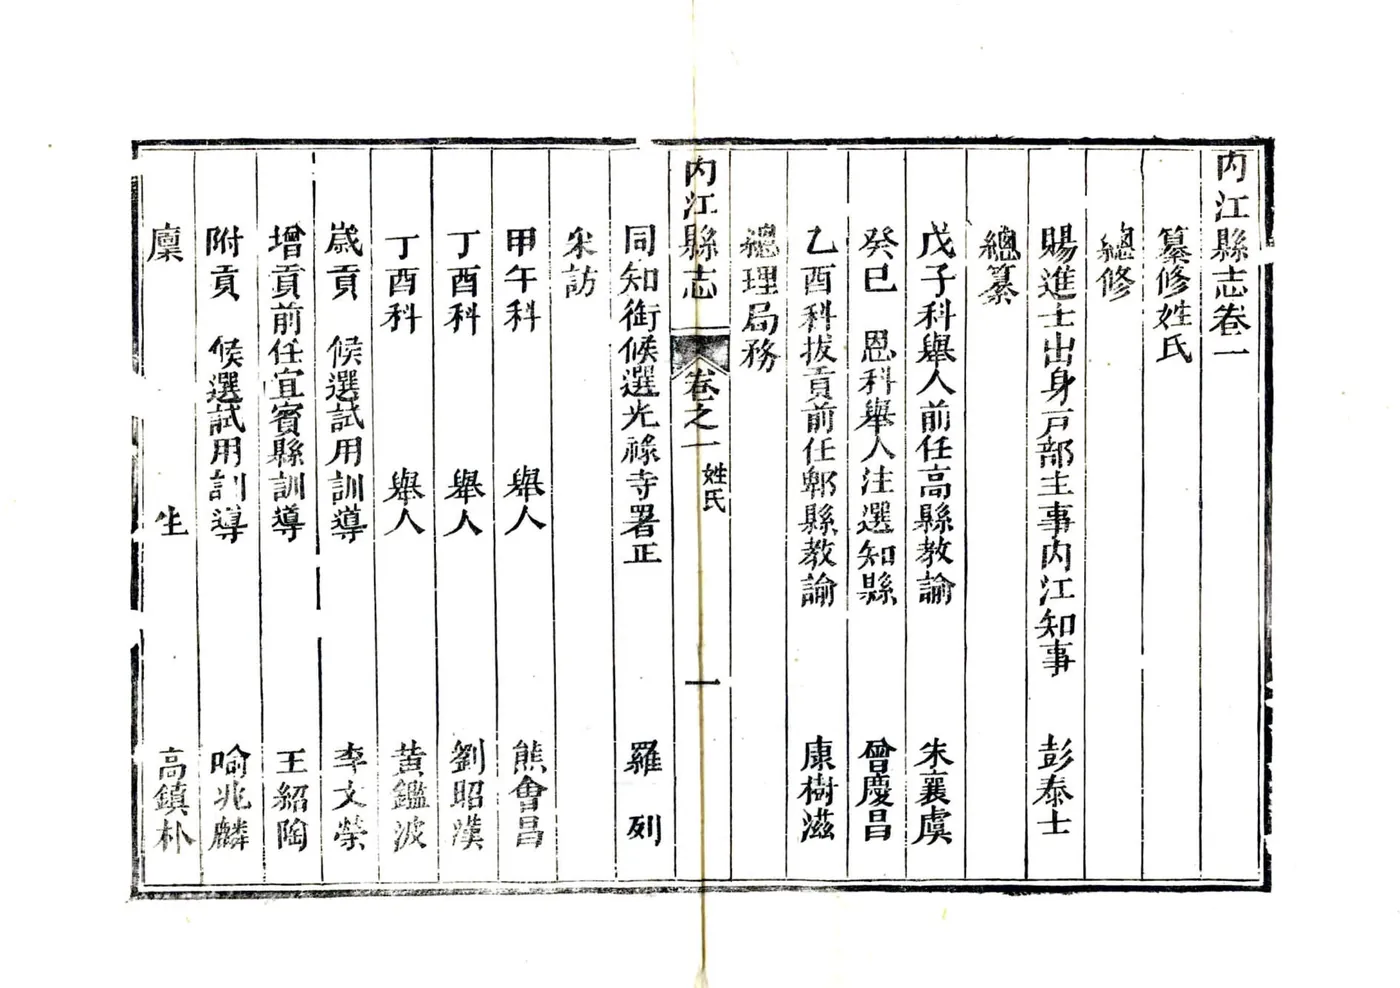 内江縣志卷一
纂修姓氏
總修
賜進士出身戸部主事内江知事 彭泰士
總纂
戊子科舉人前任高縣教諭 朱襄虞
癸巳 恩科舉人注選知縣 曾慶昌
乙酉科拔貢前任郫縣教諭 康樹滋
總理局務
内江縣志 卷之一 姓氏 一
同知銜候選光祿寺署正 羅列
采訪
甲午科 舉人 熊會昌
丁酉科 舉人 劉昭漢
丁酉科 舉人 黃鑑波
歲貢 候選試用訓導 李文榮
增貢前任宜賓縣訓導 王紹陶
附貢 候選試用訓導 喻兆麟
廩生 高鎮朴